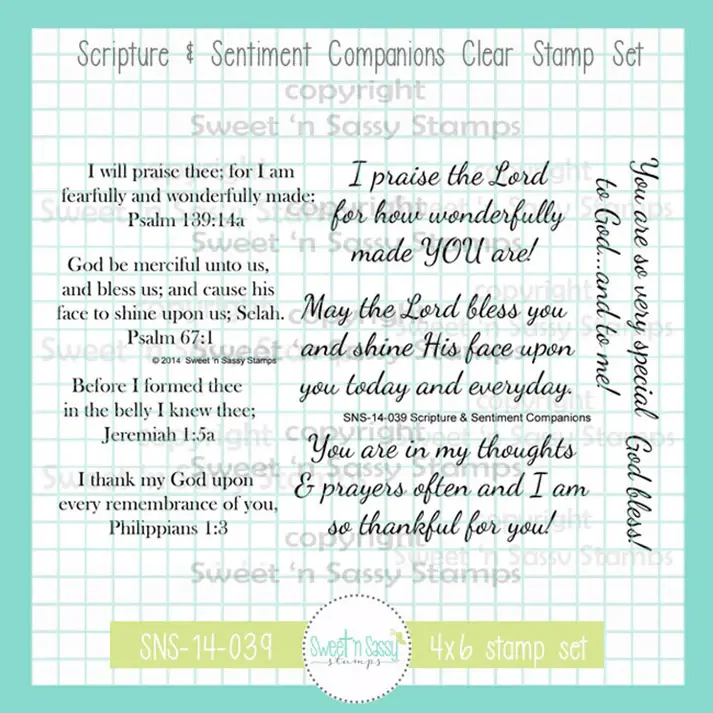 Scripture & Sentiment Companions Clear Stamp Set
copyright
Sweet 'n Sassy Stamps
I will praise thee; for I am
fearfully and wonderfully made;
Psalm 139:14a
God be merciful unto us,
and bless us; and cause his
face to shine upon us; Selah.
Psalm 67:1
© 2014 Sweet 'n Sassy Stamps
Before I formed thee
in the belly I knew thee;
Jeremiah 1:5a
I thank my God upon
every remembrance of you,
Philippians 1:3
I praise the Lord
for how wonderfully
made YOU are!
May the Lord bless you
and shine His face upon
you today and everyday.
SNS-14-039 Scripture & Sentiment Companions
You are in my thoughts
& prayers often and I am
so thankful for you!
You are so very special
to God...and to me!
God bless!
copyright
Sweet 'n Sassy Stamps
SNS-14-039
Sweet 'n Sassy
stamps
4x6 stamp set